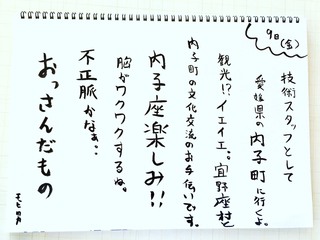 9日(金)
技術スタッフとして
愛媛県の内子町に行くよ。
観光!?イエイエ。宜野座村と
内子町の文化交流のお手伝いです。
内子座楽しみ!!
胸がワクワクするね。
不正脈かなぁ…
おっさんだもの